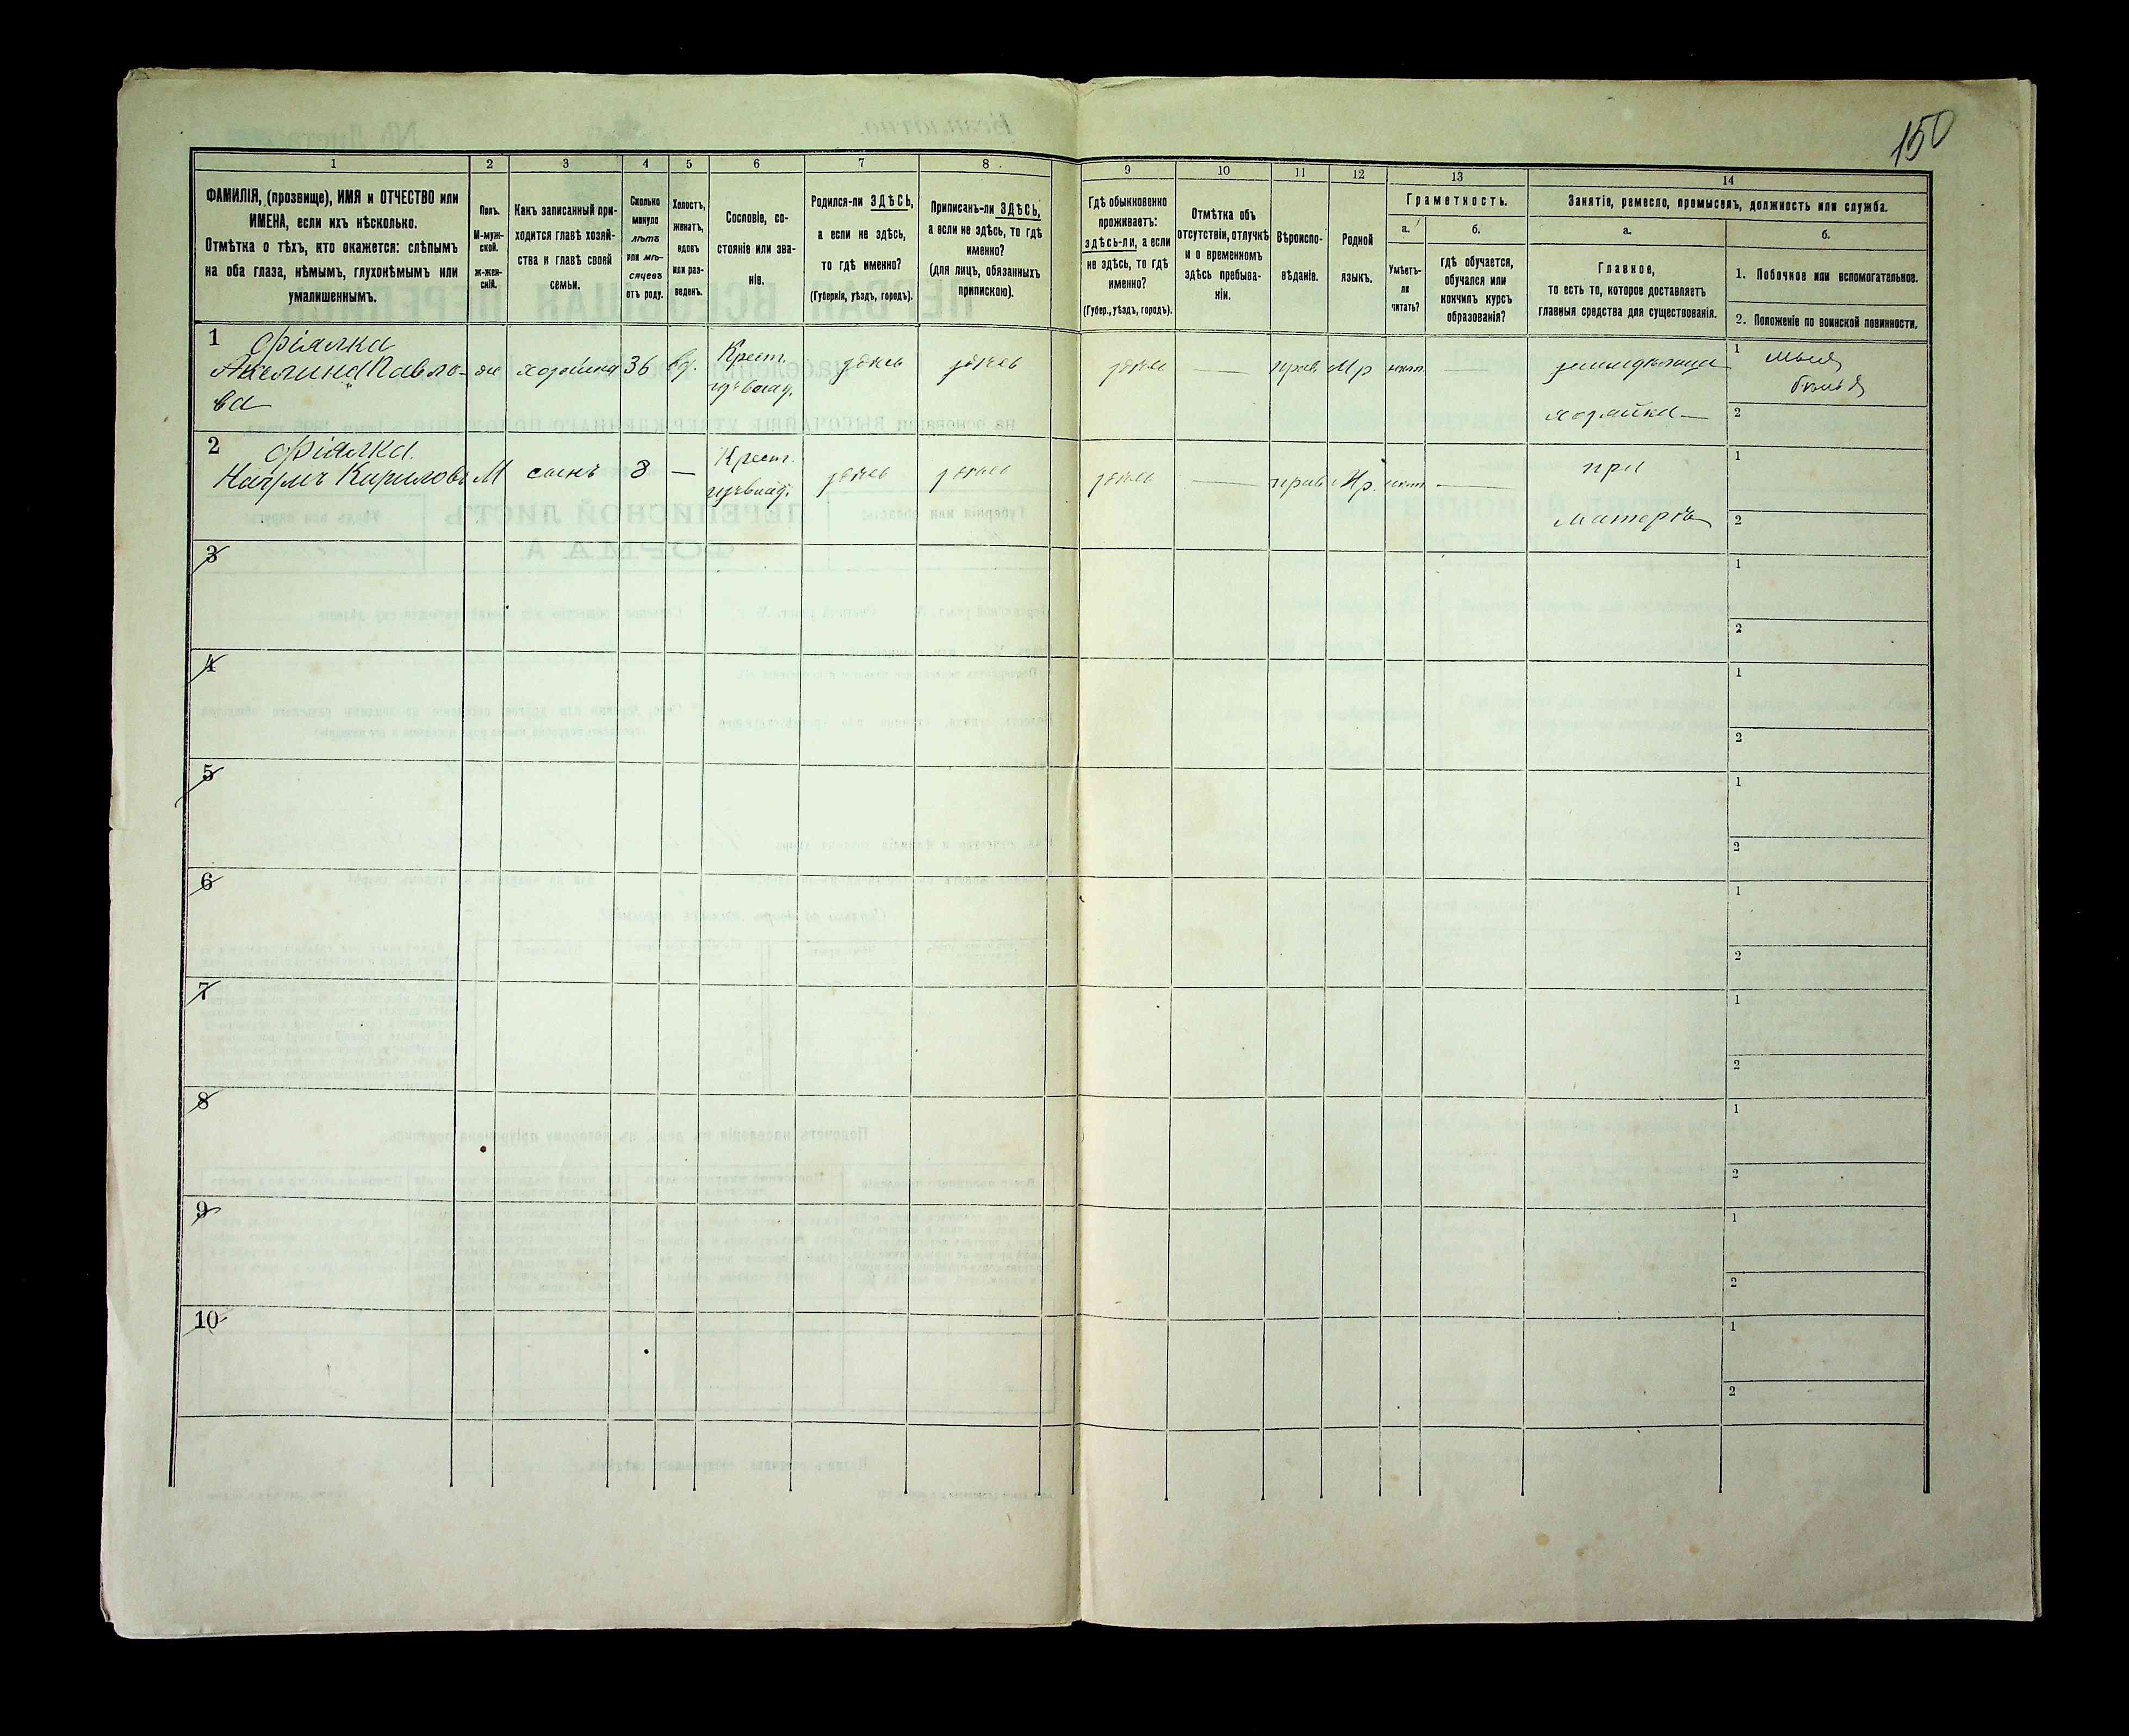 150
1
2
3
4
5
6
7
8
9
10
11
12
13
14
ФАМИЛІЯ, (прозвище), ИМЯ и ОТЧЕСТВО или
ИМЕНА, если ихъ нѣсколько.
Отмѣтка о тѣхъ, кто окажется: слѣпымъ
на оба глаза, нѣмымъ, глухонѣмымъ или
умалишеннымъ.
Полъ.
М-муж-
ской.
ж-жен-
скій.
Какъ записанный при-
ходится главѣ хозяй-
ства и главѣ своей
семьи.
Сколько
минуло
лѣтъ
или мѣ-
сяцевъ
отъ роду.
Холостъ,
женатъ,
вдовъ
или раз-
веденъ.
Сословіе, со-
стояніе или зва-
ніе.
Родился-ли ЗДѢСЬ,
а если не здѣсь,
то гдѣ именно?
(Губернія, уѣздъ, городъ).
Приписанъ-ли ЗДѢСЬ,
а если не здѣсь, то гдѣ
именно?
(для лицъ, обязанныхъ
припискою).
Гдѣ обыкновенно
проживаетъ:
здѣсь-ли, а если
не здѣсь, то гдѣ
именно?
(Губер., уѣздъ, городъ).
Отмѣтка объ
отсутствіи, отлучкѣ
и о временномъ
здѣсь пребыва-
ніи.
Вѣроиспо-
вѣданіе.
Родной
языкъ.
Грамотность.
а.
Умѣетъ-
ли
читать?
б.
гдѣ обучается,
обучался или
кончилъ курсъ
образованія?
Занятіе, ремесло, промыселъ, должность или служба.
а.
Главное,
то есть то, которое доставляетъ
главныя средства для существованія.
б.
1. Побочное или вспомогательное.
2. Положеніе по воинской повинности.
1 Фіялка
Акелина Павло-
ва
ж
хозяйка
36
вд.
Крест.
здѣсь
здѣсь
здѣсь
—
прав
Мр
нѣт
—
хозяйка
1
мыла
бѣлье
2
2 Фіялка.
Наумъ Кириловъ
М
сынъ
8
—
Крест.
здѣсь
здѣсь
здѣсь
—
прав
Мр.
нѣт
—
при
матери
1
2
3
1
2
4
1
2
5
1
2
6
1
2
7
1
2
8
1
2
9
1
2
10
1
2